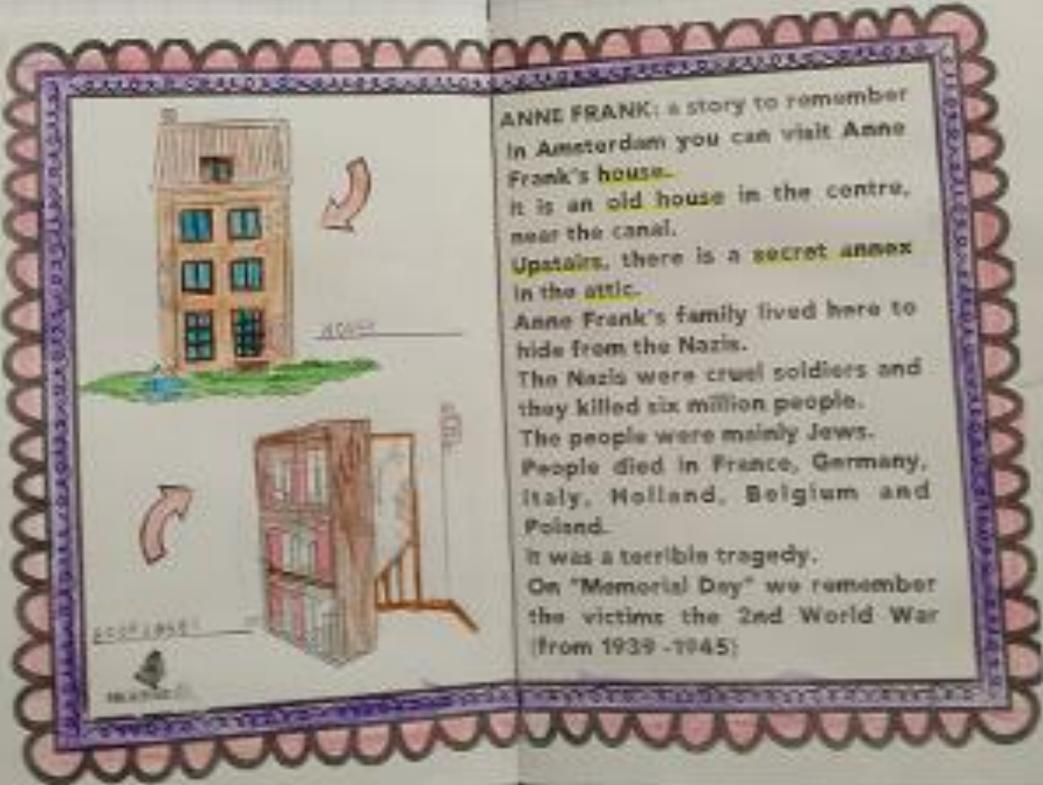 HOUSE
BOOKCASE
ANNE FRANK: a story to remember
In Amsterdam you can visit Anne
Frank's house.
It is an old house in the centre,
near the canal.
Upstairs, there is a secret annex
in the attic.
Anne Frank's family lived here to
hide from the Nazis.
The Nazis were cruel soldiers and
they killed six million people.
The people were mainly Jews.
People died in France, Germany,
Italy, Holland, Belgium and
Poland.
It was a terrible tragedy.
On "Memorial Day" we remember
the victims the 2nd World War
(from 1939 -1945)